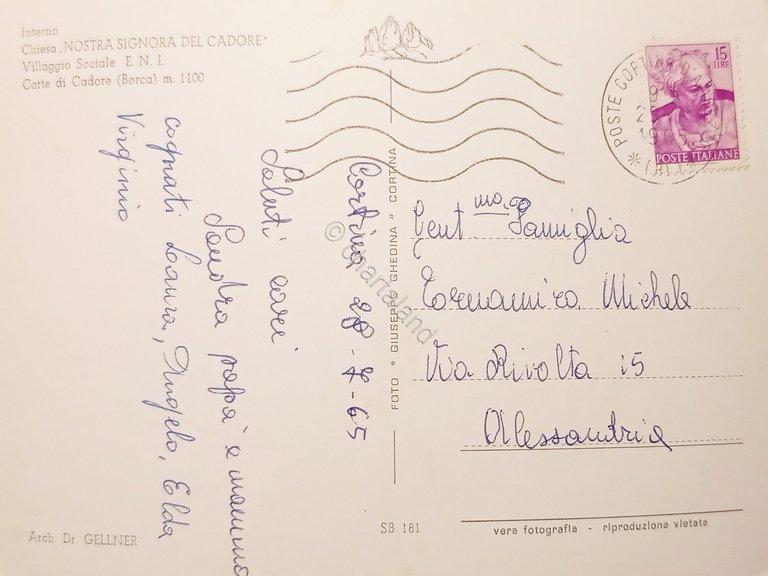 Interno
Chiesa „NOSTRA SIGNORA DEL CADORE"
Villaggio Sociale E. N. I.
Corte di Cadore (Borca) m. 1100
Cortina 28-7-65
Saluti cari
Sandra papà e mamma
cognati Laura, Angelo, Elda
Virginio
Arch. Dr. GELLNER
FOTO " GIUSEPPE GHEDINA " CORTINA
© Chartaland
POSTE CORTINA
15
LIRE
POSTE ITALIANE
Gent ma Famiglia
Tornamira Michele
Via Rivolta 15
Alessandria
SB 181
vera fotografia - riproduzione vietata